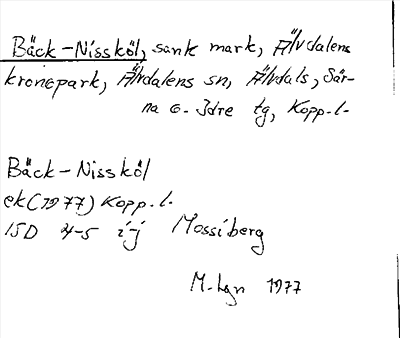 Bäck-Nissköl, sank mark, Älvdalens
kronopark, Älvdalens sn, Älvdals, Sär-
na o. Idre tg, Kopp.l.
Bäck-Nissköl
ek (1977) Kopp.l.
15D 4-5 i-j Mossiberg
M. Lgn 1977